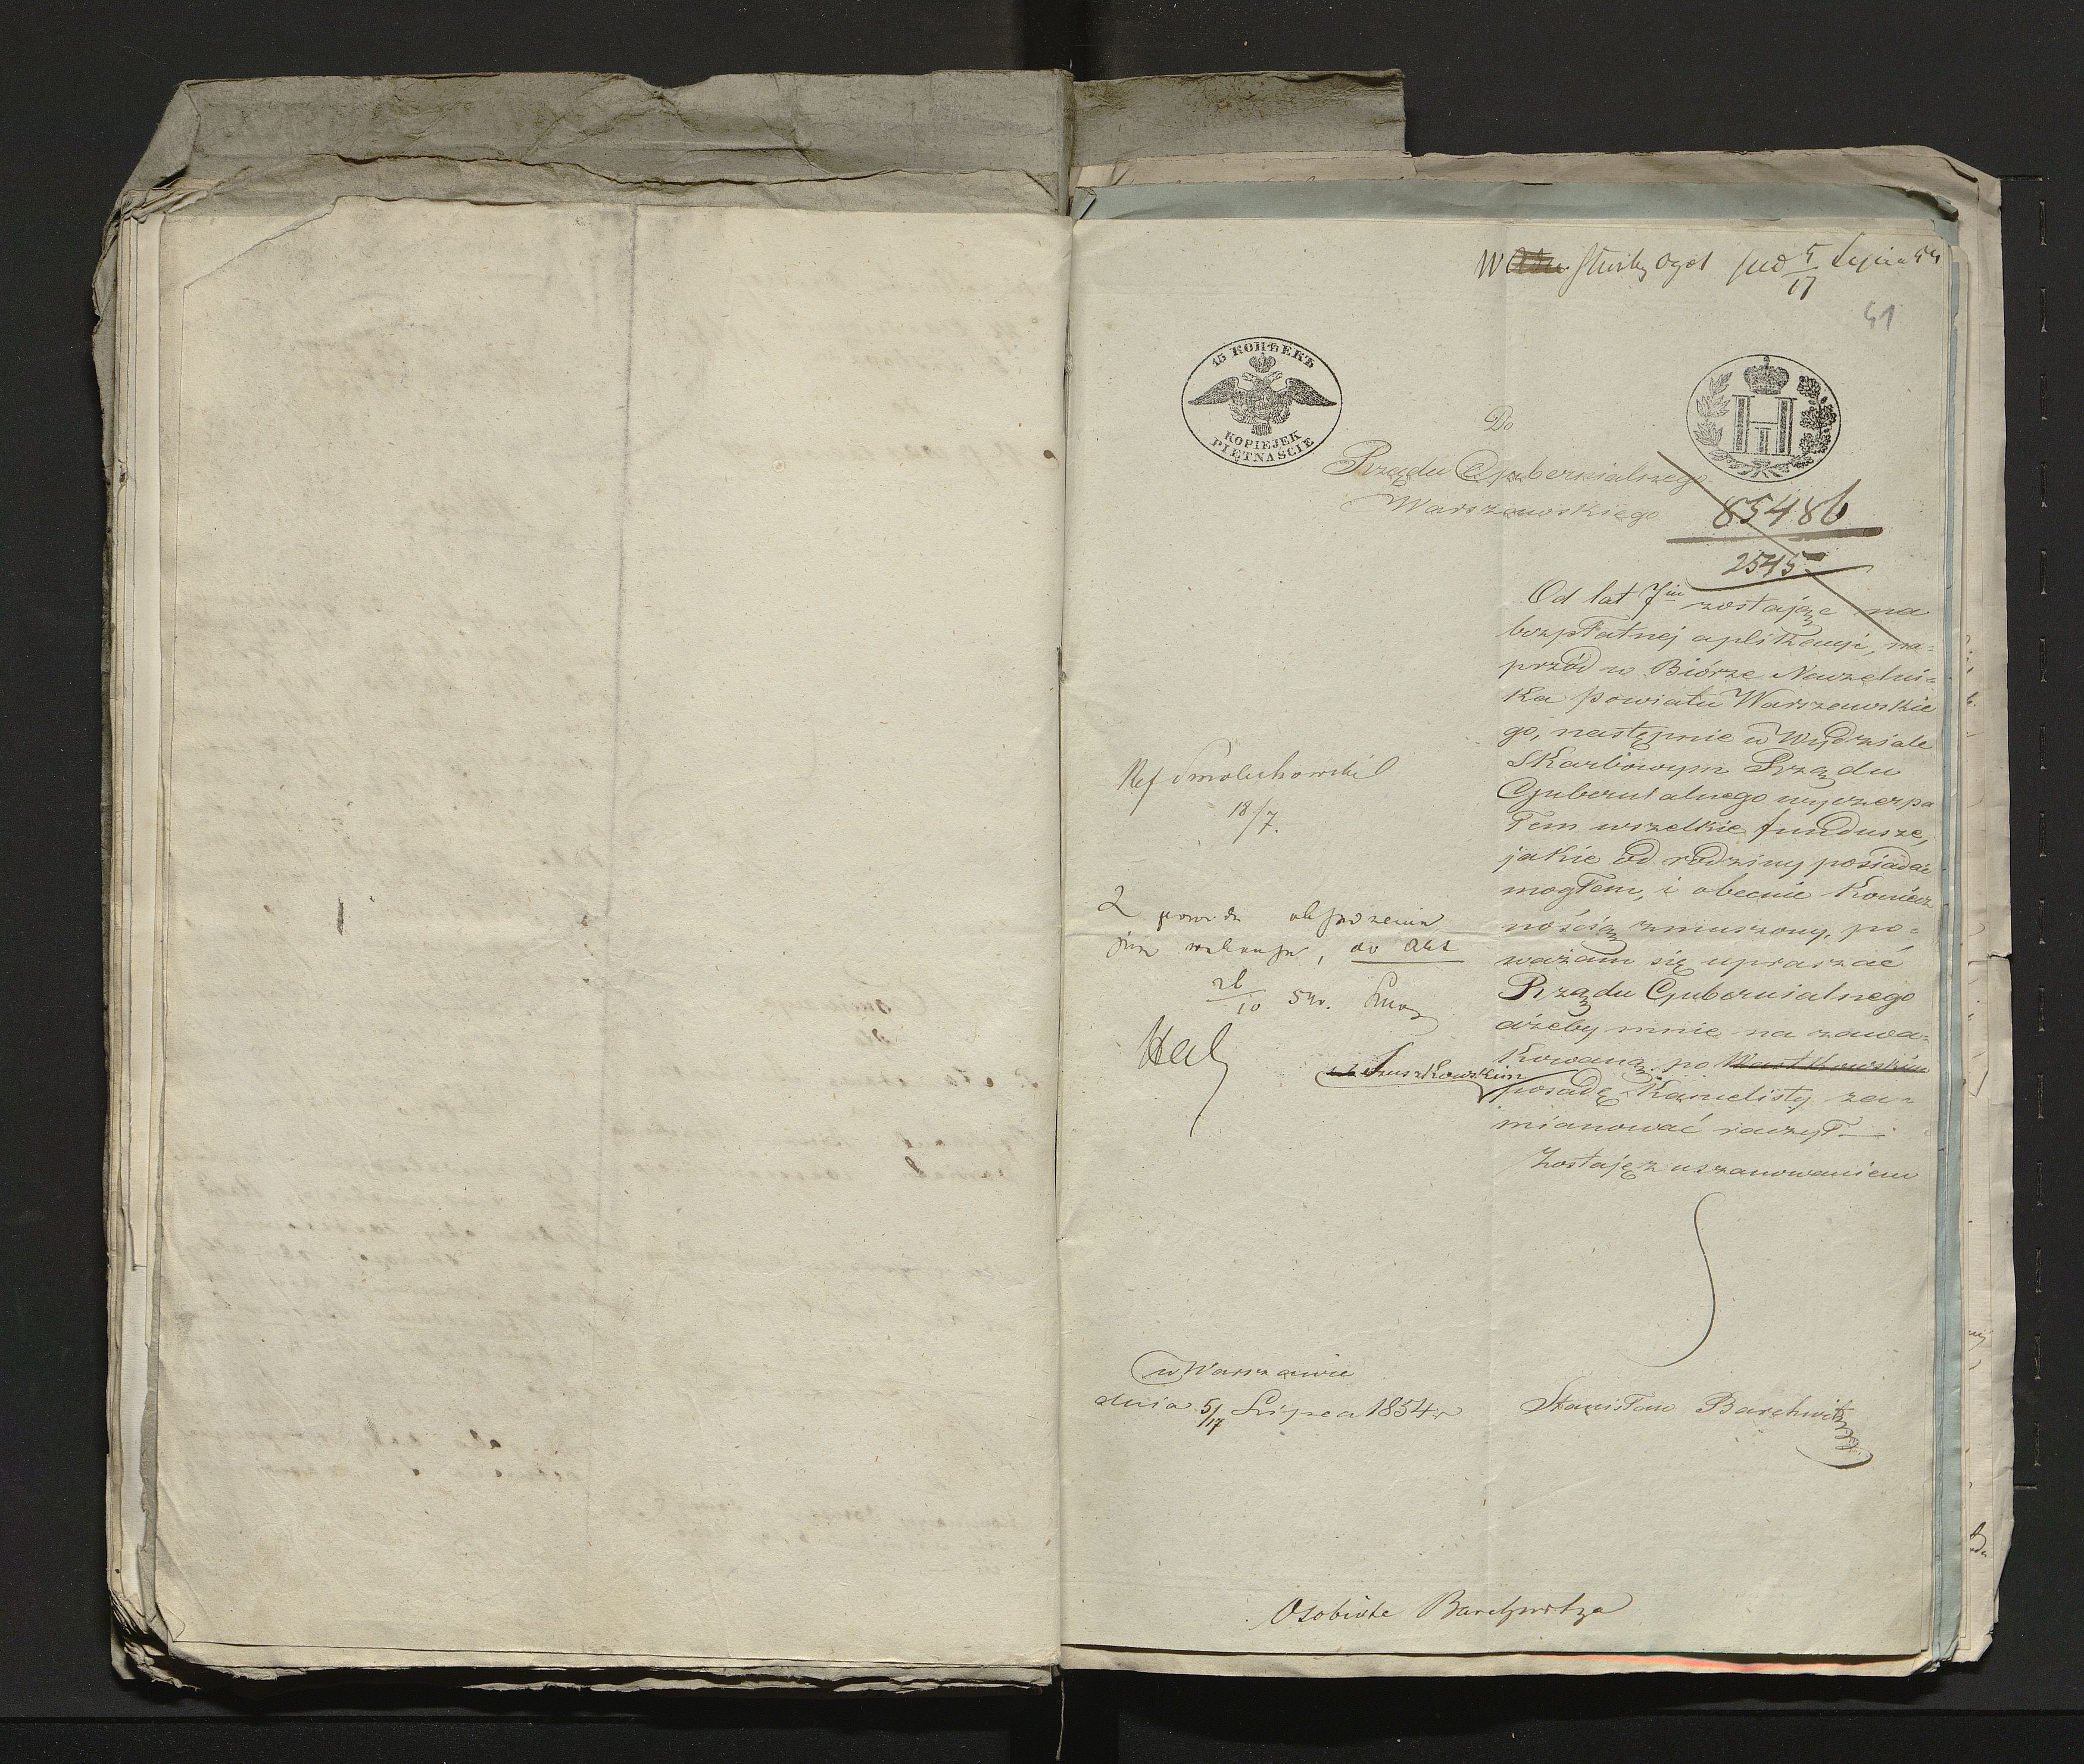 W Służby Ogól pud 5/17 Lipca 54
51
15 КОПѢЕКЪ
KOPIEJEK
PIĘTNAŚCIE
Do
Rządu Gubernialnego
Warszawskiego
85486
2545
Od lat 7miu zostając na
bezpłatnej aplikacyi, na=
przód w Biórze Naczelni=
ka Powiatu Warszawskie
go, następnie w Wydziale
Skarbowym Rządu
Gubernialnego wyczerpa
łem wszelkie fundusze,
jakie od rodziny posiadać
mogłem, i obecnie koniecz
nością zmuszony, po=
ważam się upraszać
Rządu Gubernialnego
ażeby mnie na zawa=
kowaną po
Szuszkowskim
posadę Kancelisty za=
mianować raczył.
Zostaję z uszanowaniem
Stanisław Barchwitz
w Warszawie
dnia 5/17 Lipca 1854 r
Ref Smoluchowski
18/7.
Z powodu obsadzenia
już wakansu, do Akt
26/10 54r.
Osobiste Barchwitza